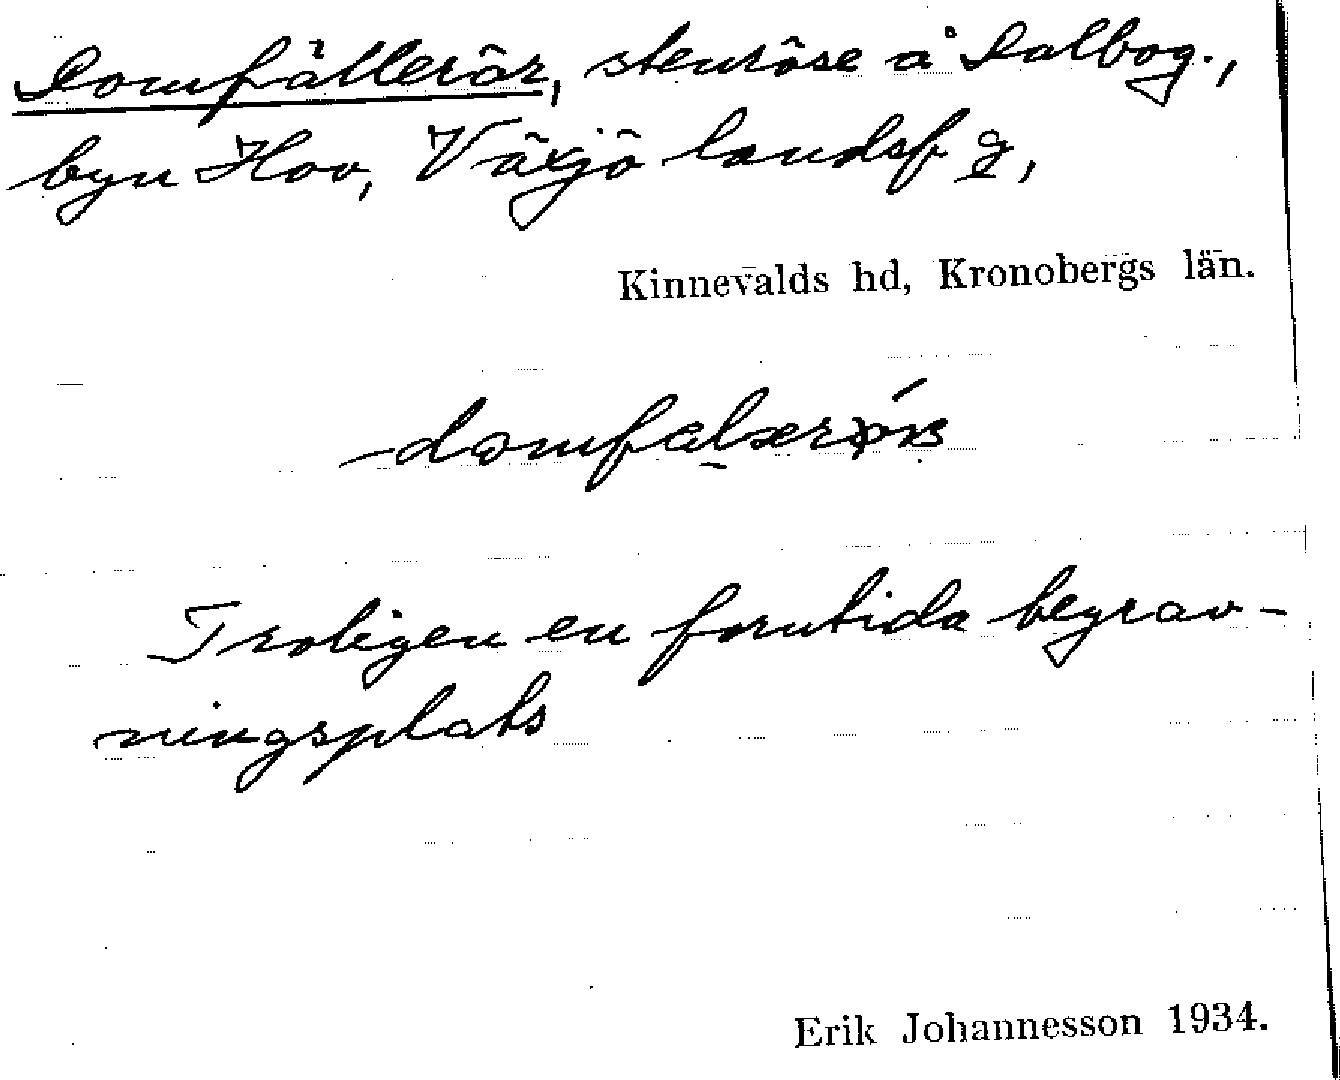 Domfällerör, stenröse å Dalbog.,
byn Hov, Växjö landsf g,
Kinnevalds hd, Kronobergs län.
Troligen en forntida begrav-
ningsplats
Erik Johannesson 1934.